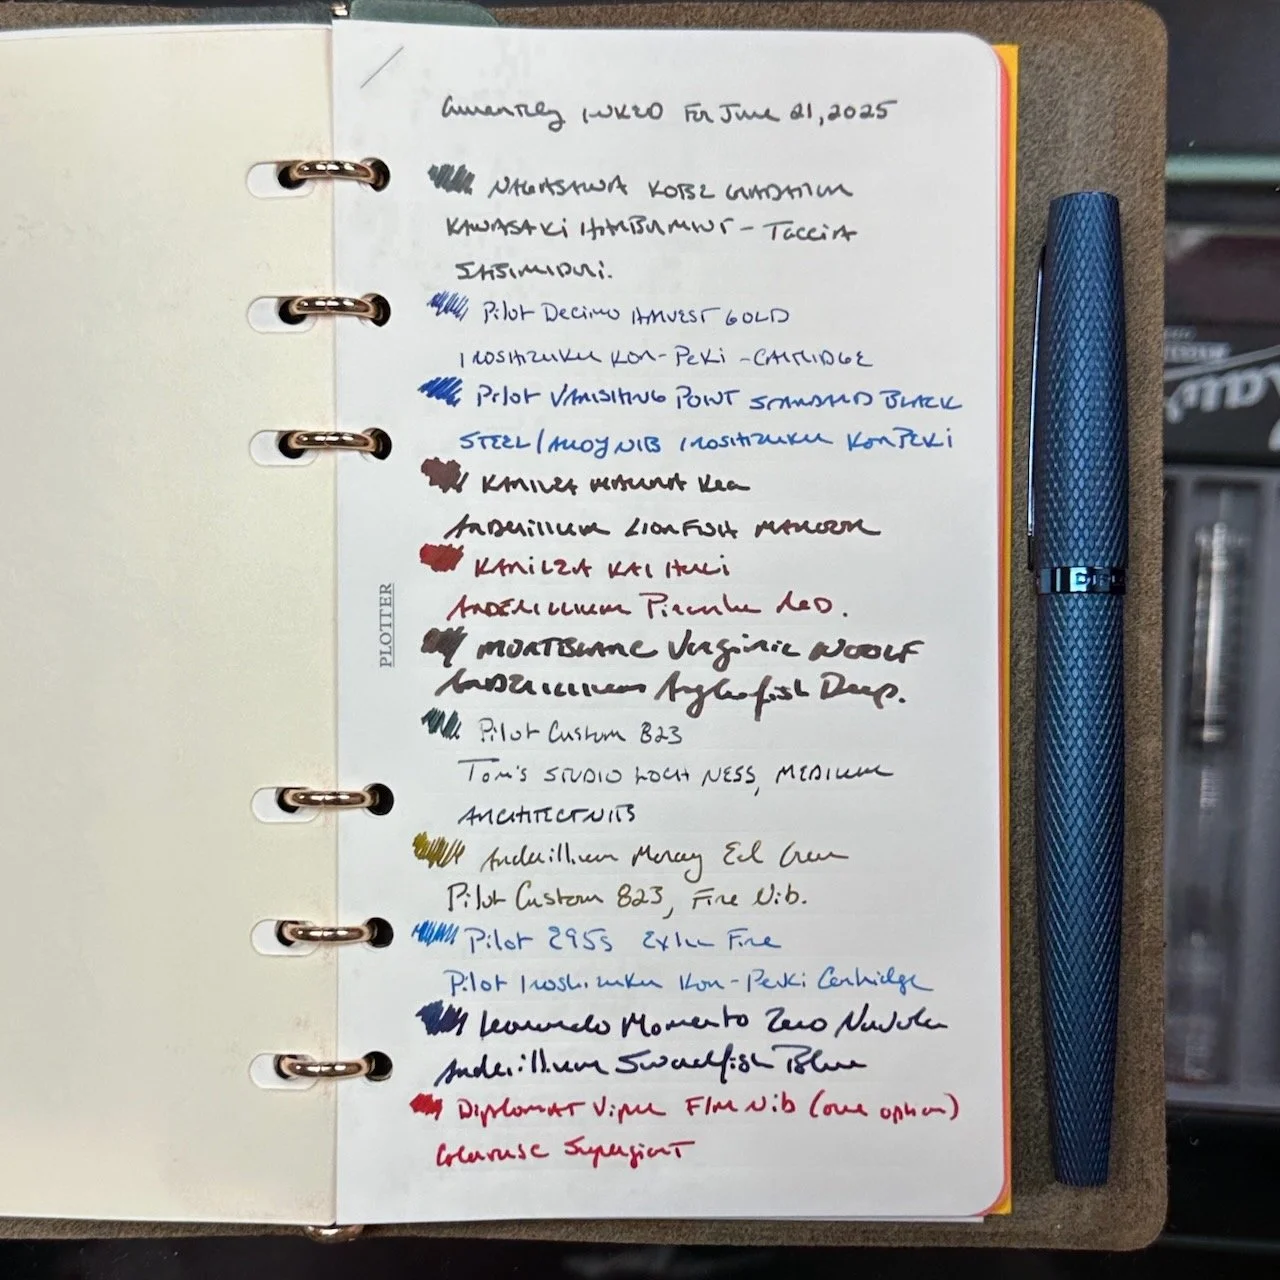 Currently INKED For June 21, 2025
NAGASAWA KOBE
KAWASAKI - Taccia
Pilot Decimo HARVEST GOLD
IROSHIZUKU KON-PEKI - CARTRIDGE
Pilot VANISHING POINT STANDARD BLACK
STEEL/ALLOY NIB IROSHIZUKU KON PEKI
KANILEA MAUNA Kea
ANDERILLIUM LIONFISH MAROON
KANILEA
ANDERILLIUM Piranha RED.
MONTBLANC Virginia WOOLF
ANDERILLIUM Anglerfish Deep.
Pilot Custom 823
Tom's STUDIO LOCH NESS, MEDIUM
ARCHITECT NIB
Anderillium Moray Eel Green
Pilot Custom 823, Fine Nib.
Pilot E95s Extra Fine
Pilot Iroshizuku Kon-Peki Cartridge
Leonardo Momento Zero
Anderillium Swordfish Blue
DIPLOMAT Viper FINE Nib (one option)
Colorverse Supergiant
PLOTTER